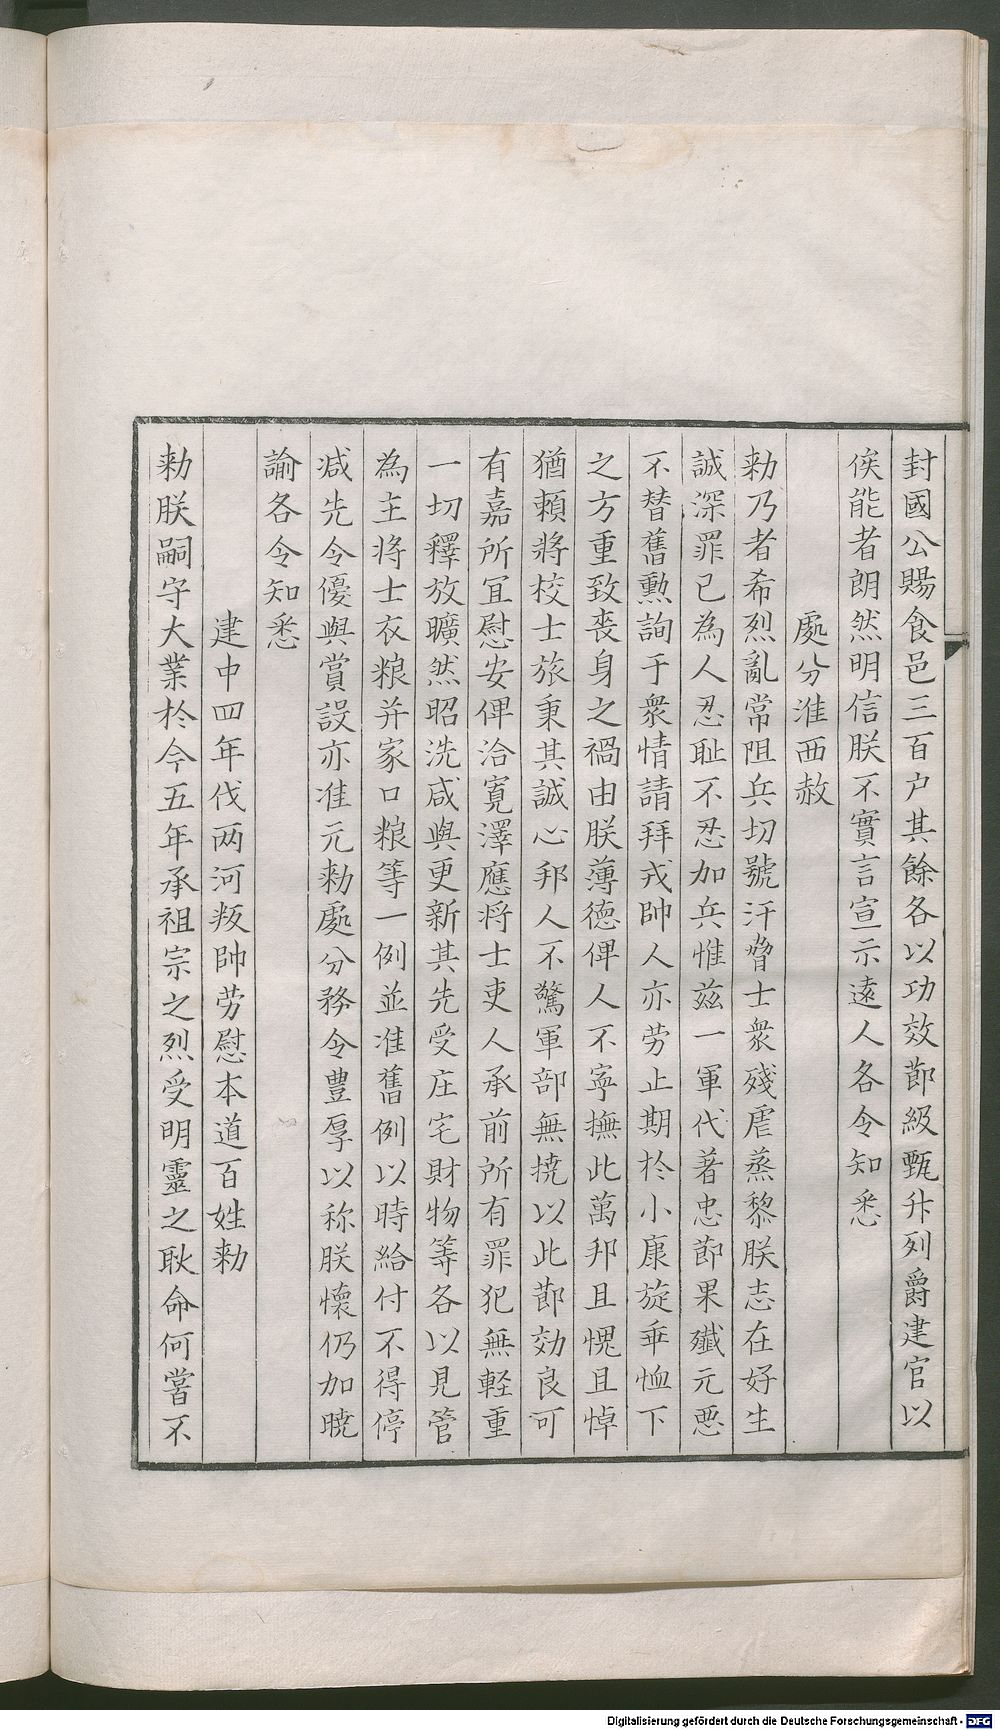 封國公賜食邑三百户其餘各以功效節級甄升列爵建官以
俟能者朗然明信朕不實言宣示遠人各令知悉
處分淮西赦
勑乃者希烈亂常阻兵切號汗脅士衆殘虐蒸黎朕志在好生
誠深罪已為人忍耻不忍加兵惟兹一軍代著忠節果殲元惡
不替舊勲詢于衆情請拜戎帥人亦劳止期於小康旋乖恤下
之方重致喪身之禍由朕薄德俾人不寧撫此萬邦且愧且悼
猶賴將校士旅秉其誠心邦人不驚軍部無撓以此節効良可
有嘉所冝慰安俾洽寛澤應将士吏人承前所有罪犯無軽重
一切釋放曠然昭洗咸與更新其先受庄宅財物等各以見管
為主将士衣粮并家口粮等一例並准舊例以時給付不得停
减先令優與賞設亦准元勑處分務令豊厚以称朕懷仍加曉
諭各令知悉
建中四年伐两河叛帥劳慰本道百姓勑
勑朕嗣守大業於今五年承祖宗之烈受明靈之耿命何嘗不
Digitalisierung gefördert durch die Deutsche Forschungsgemeinschaft - DFG